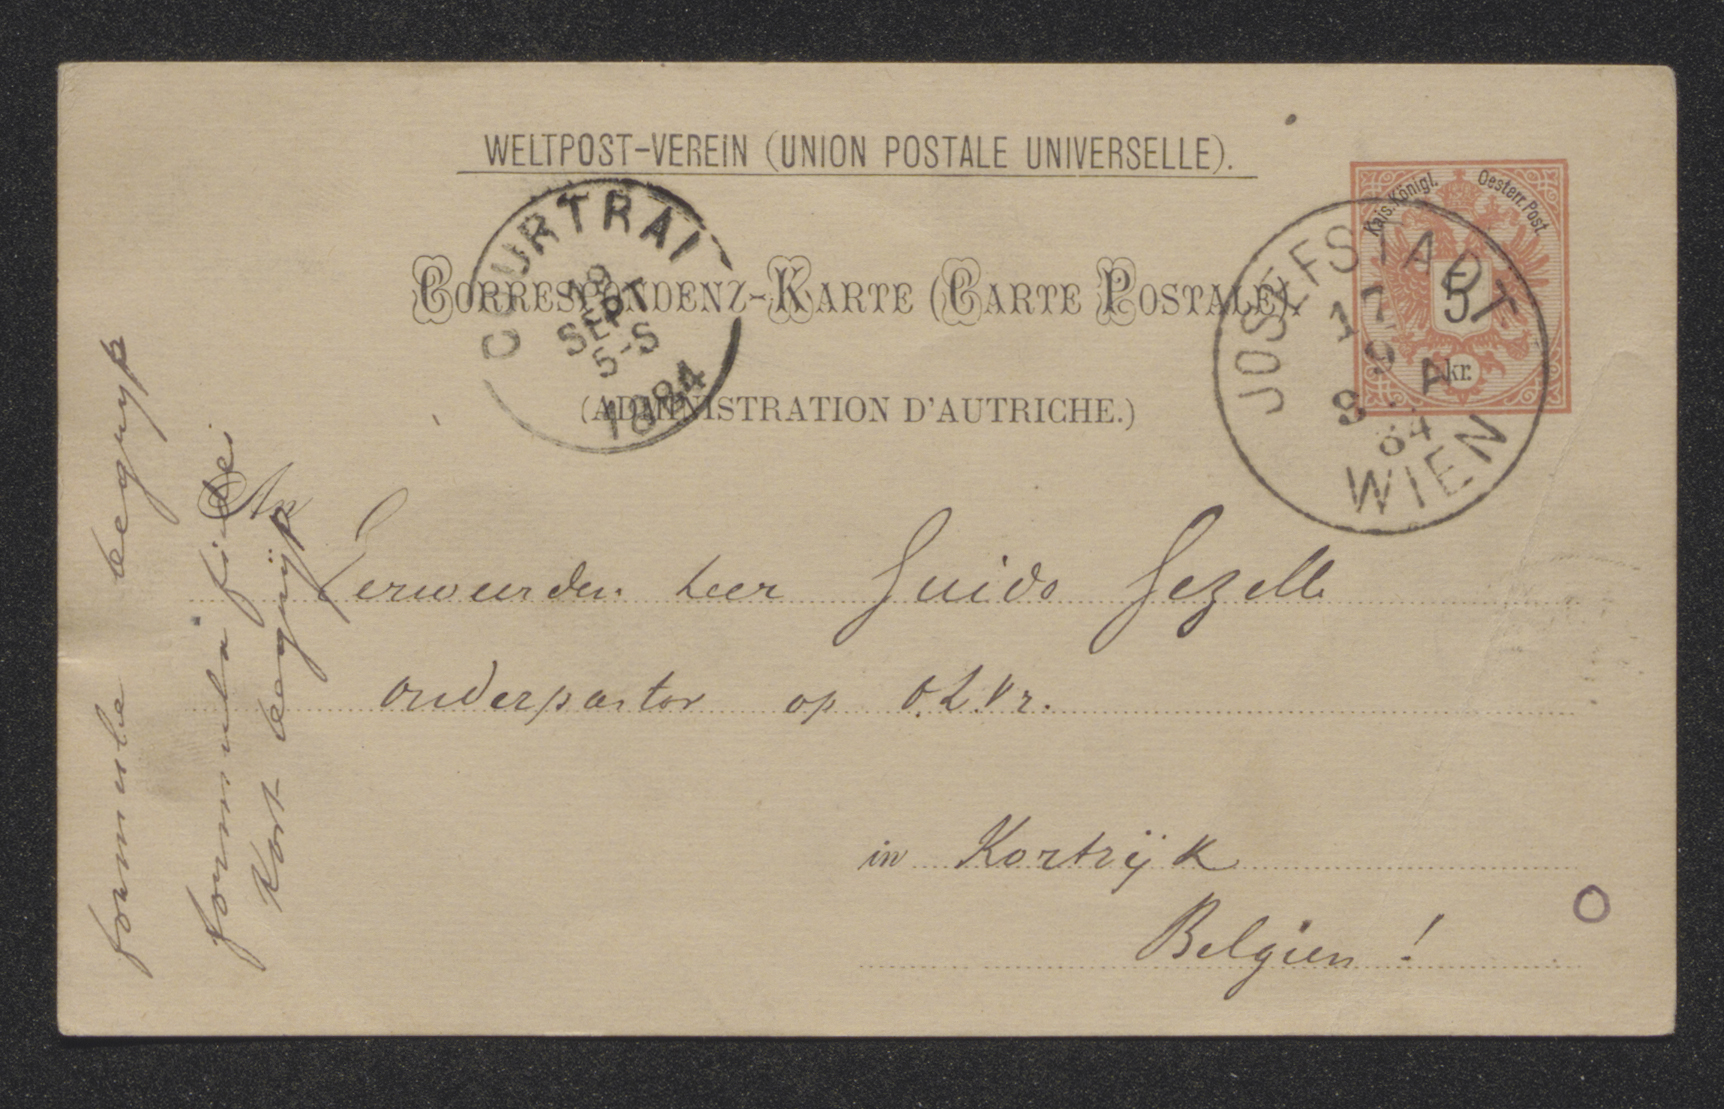 WELTPOST-VEREIN (UNION POSTALE UNIVERSELLE).
Kais. Königl. Oesterr. Post.
5
kr.
COURTRAI
19
SEPT
5-S
1884
JOSEFSTADT
17
9
8 A
84
WIEN
CORRESPONDENZ-KARTE (CARTE POSTALE).
(ADMINISTRATION D'AUTRICHE.)
An
Eerweerden heer Guido Gezelle
onderpastor op O.L.Vr.
in Kortrijk
Belgien!
formule begryp
formula fidei
Kort begrijp